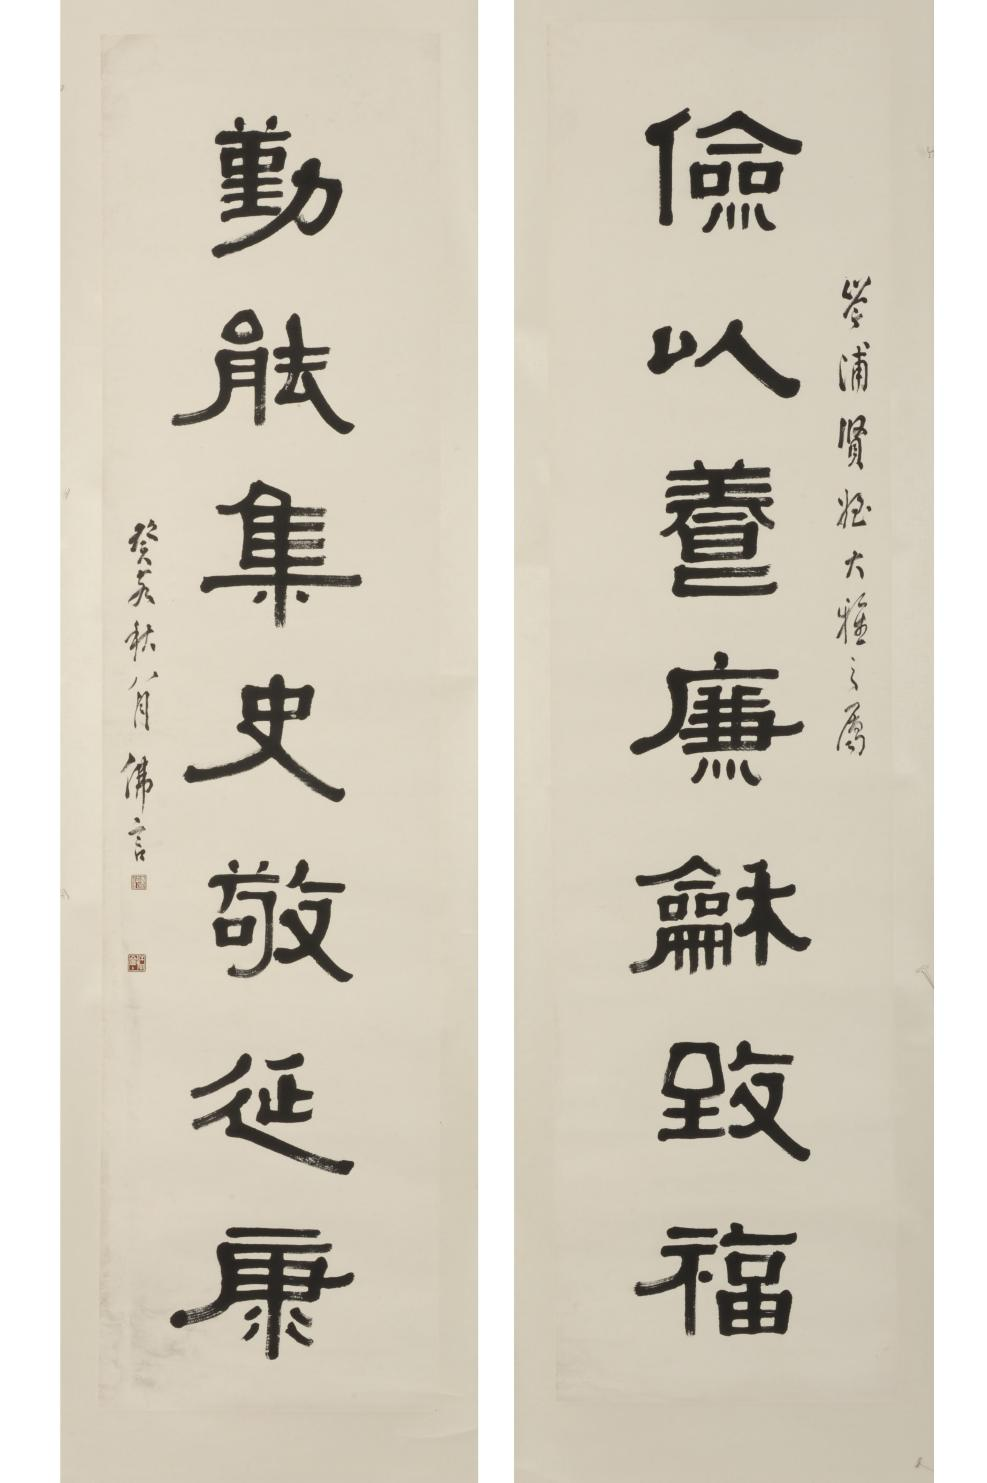 岑浦賢姪大雅之屬
儉以養廉龢致福
勤能集史敬延康
癸亥秋八月佛言